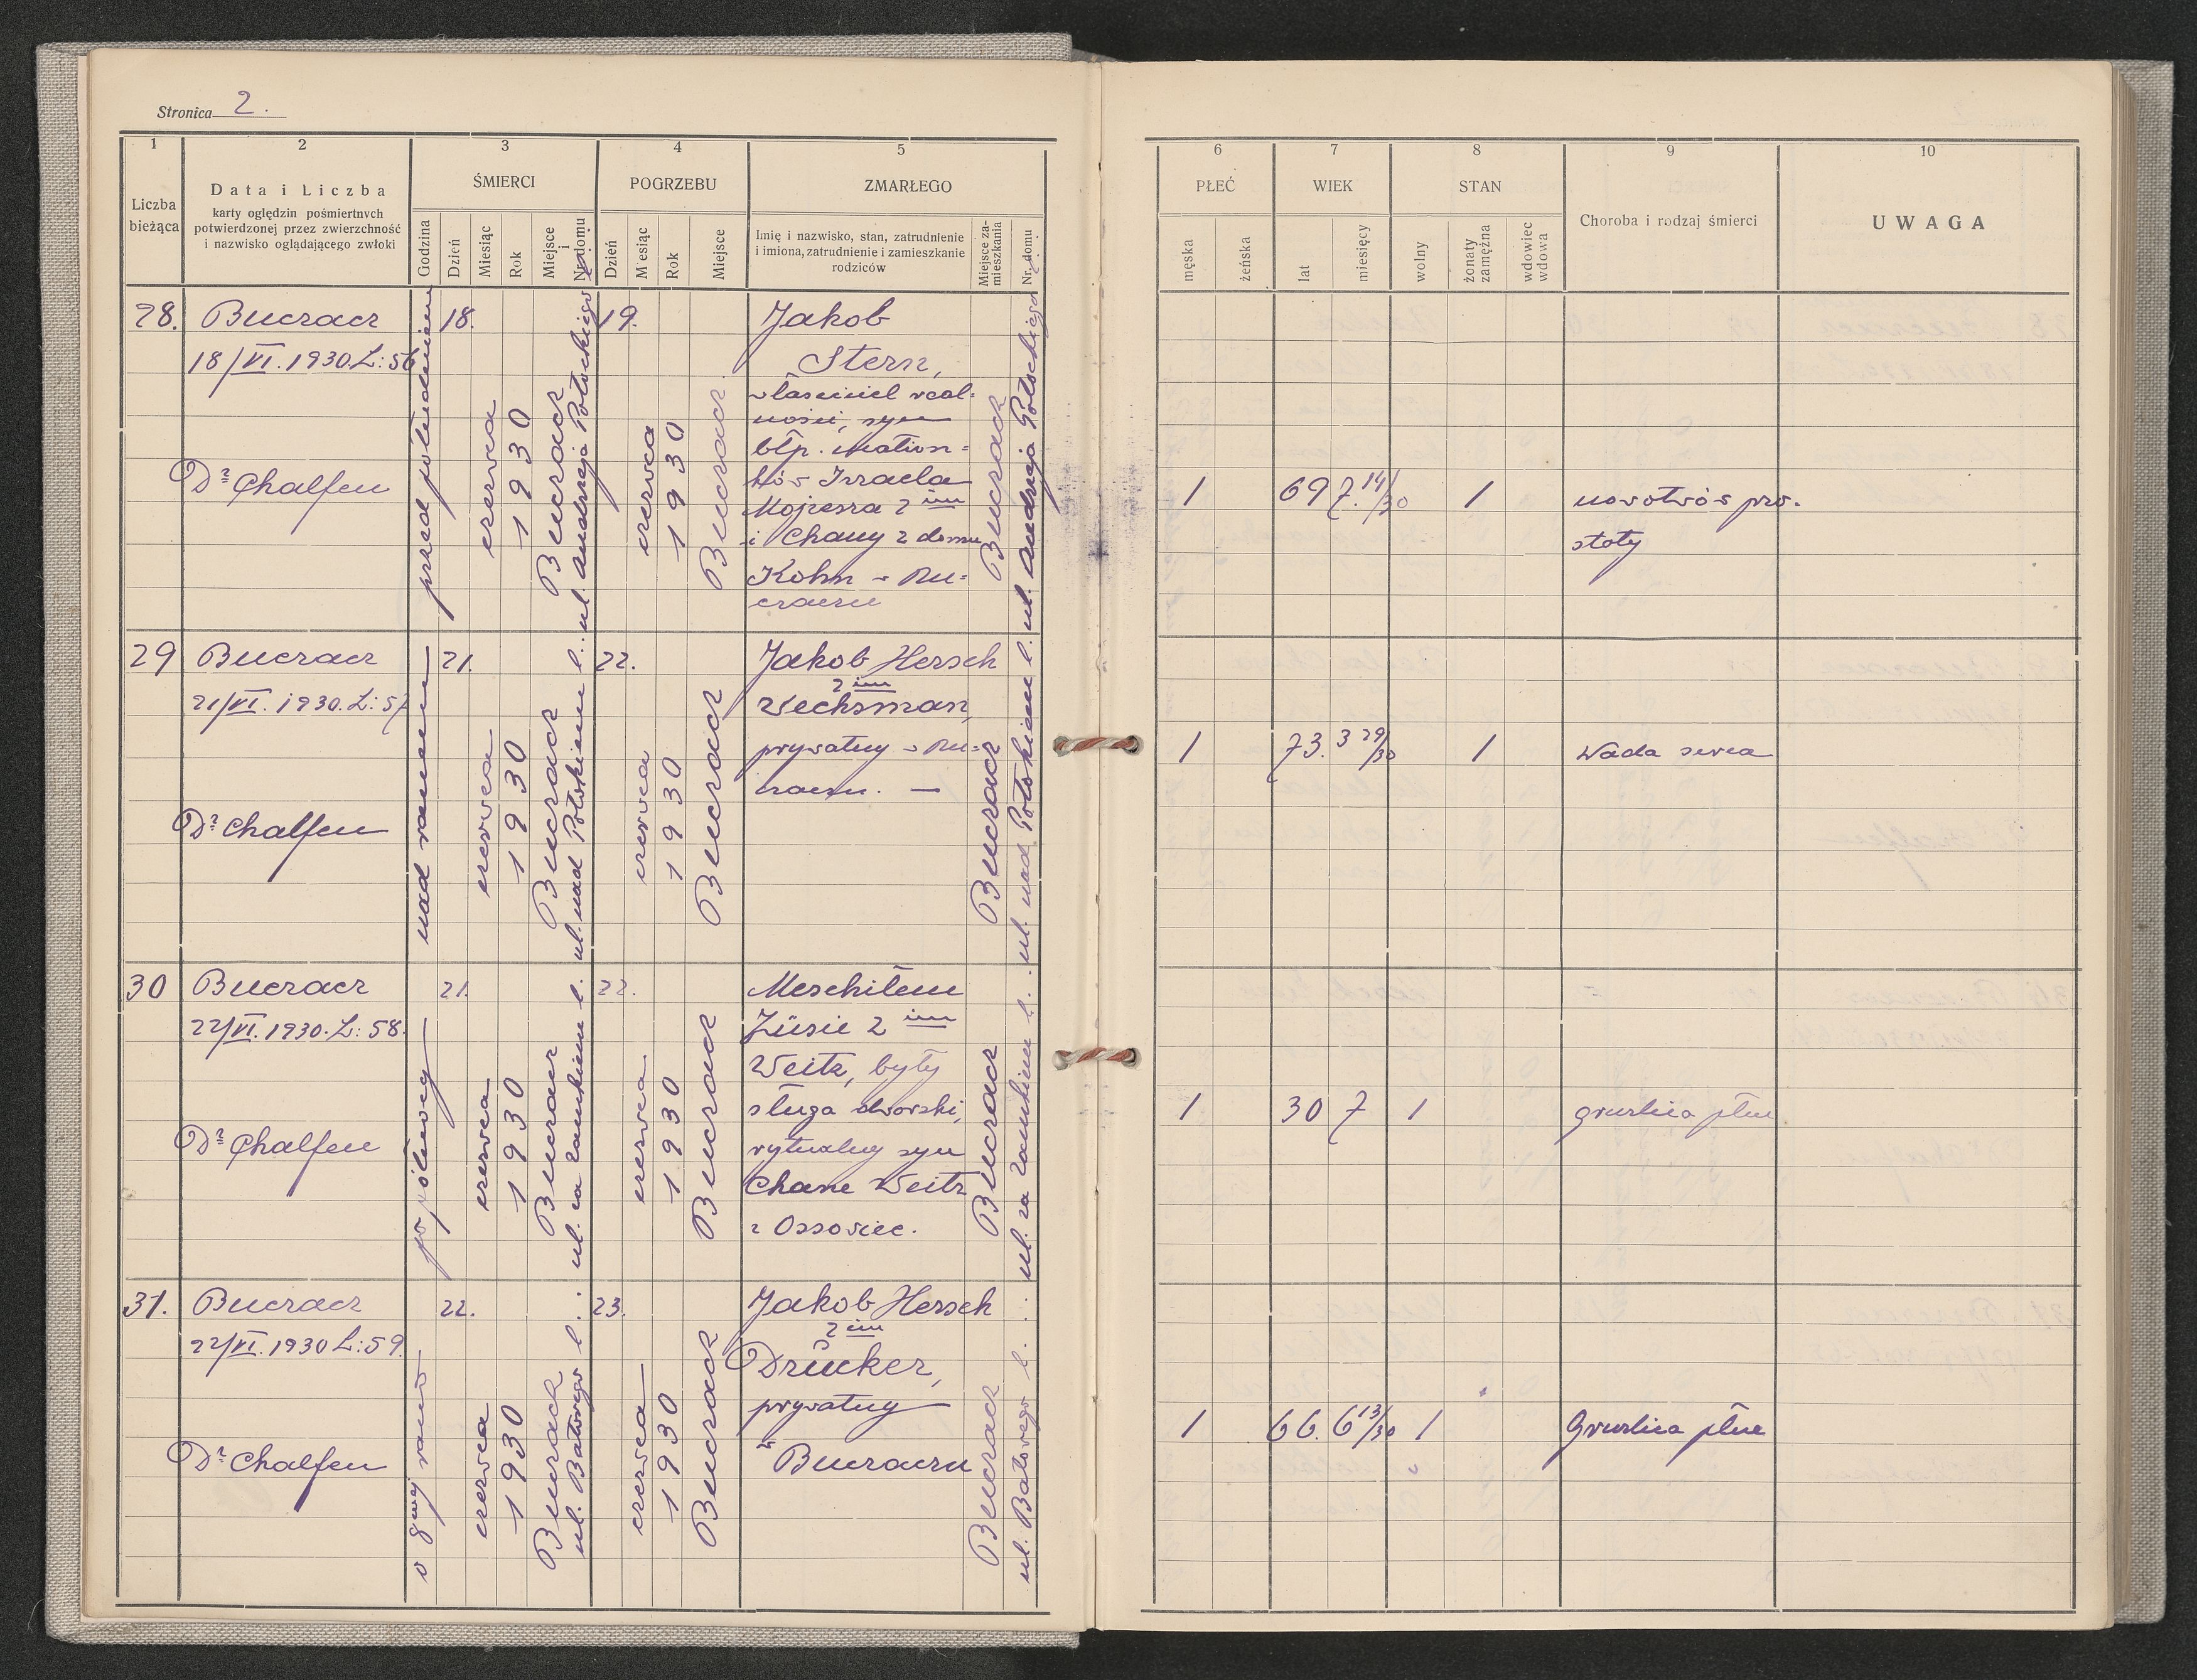 Stronica 2.
1
2
3
4
5
6
7
8
9
10
Liczba bieżąca
Data i Liczba
karty oględzin pośmiertnych
potwierdzonej przez zwierzchność
i nazwisko oglądającego zwłoki
ŚMIERCI
Godzina
Dzień
Miesiąc
Rok
Miejsce i Nr. domu
POGRZEBU
Dzień
Miesiąc
Rok
Miejsce
ZMARŁEGO
Imię i nazwisko, stan, zatrudnienie
i imiona, zatrudnienie i zamieszkanie
rodziców
Miejsce za-
mieszkania
Nr. domu
PŁEĆ
męska
żeńska
WIEK
lat
miesięcy
STAN
wolny
żonaty
zamężna
wdowiec
wdowa
Choroba i rodzaj śmierci
UWAGA
28.
Buczacz
18/VI. 1930. L: 56
Dr Chalfen
przed południem
18.
czerwca
1930
Buczacz
ul. Andrzeja Potockiego
19.
czerwca
1930
Buczacz
Jakob
Stern,
właściciel real-
ności, syn
błp. małżon-
ków Izraela
Mojżesza 2 im
i Chany z domu
Kohn w Bu-
czaczu
Buczacz
ul. Andrzeja Potockiego
1
69
7. 14/30
1
nowotwór pro-
staty
29
Buczacz
21/VI. 1930. L: 57
Dr Chalfen
nad ranem
21.
czerwca
1930
Buczacz
ul. nad Potokiem l.
22.
czerwca
1930
Buczacz
Jakob Hersch
2 im
Wechsman,
prywatny w Bu-
czaczu. —
Buczacz
ul. nad Potokiem l.
1
73.
3 29/30
1
Wada serca
30
Buczacz
22/VI. 1930. L: 58.
Dr Chalfen
po północy
21.
czerwca
1930
Buczacz
ul. za zamkiem l.
22.
czerwca
1930
Buczacz
Meschilem
Züsie 2 im
Weitz, były
sługa dworski,
rytualny syn
Chane Weitz
z Ossowiec.
Buczacz
ul. za zamkiem l.
1
30
7
1
gruźlica płuc
31.
Buczacz
22/VI. 1930 L: 59.
Dr Chalfen
o 8mej rano
22.
czerwca
1930
Buczacz
ul. Batorego l.
23.
czerwca
1930
Buczacz
Jakob Hersch
2 im
Drücker,
prywatny
w Buczaczu
Buczacz
ul. Batorego l.
1
66.
6 13/30
1
Gruźlica płuc